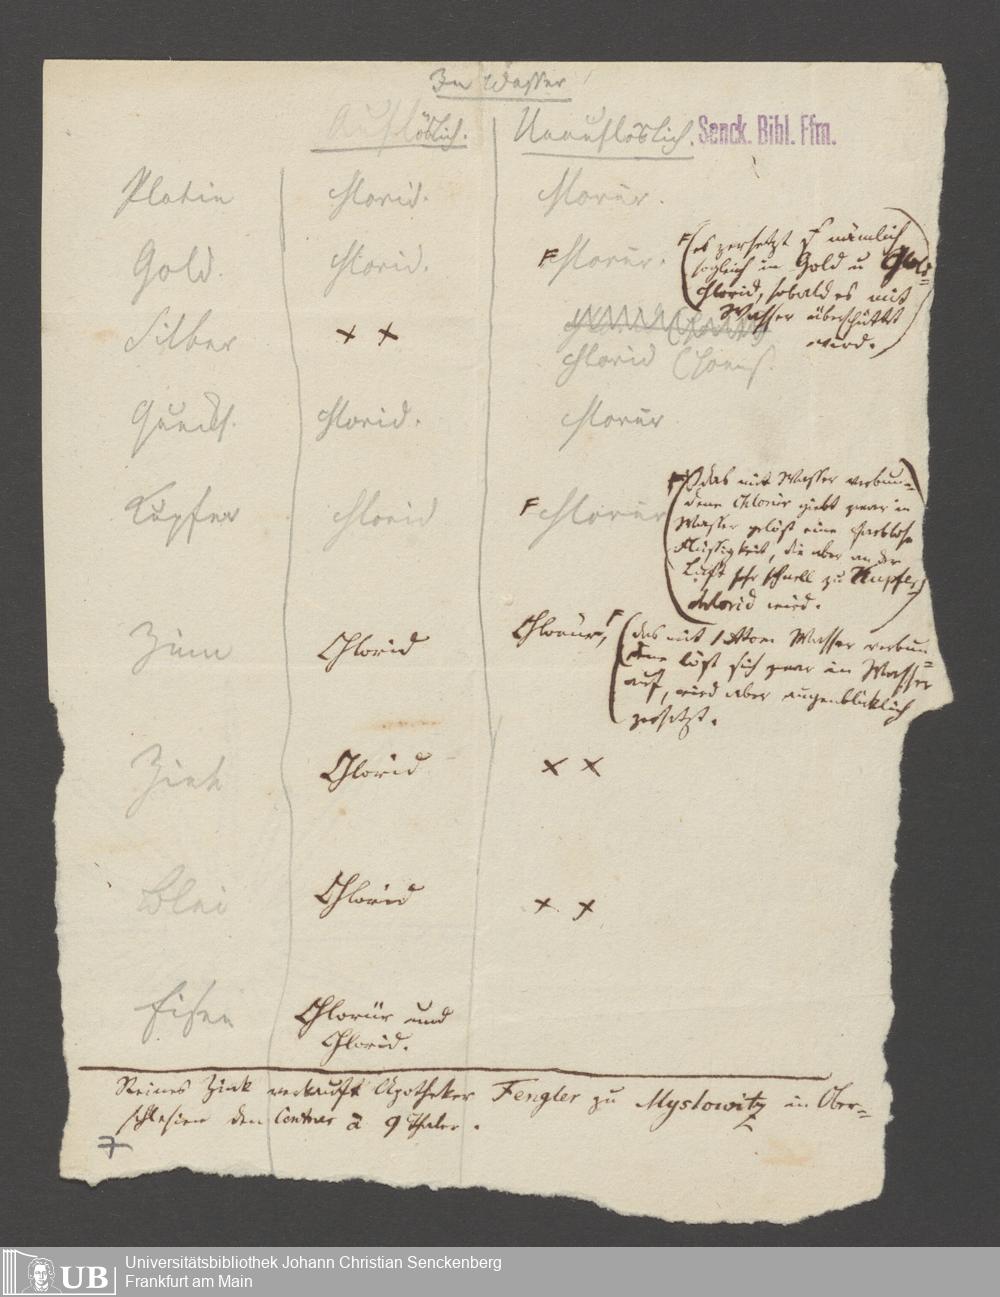 In Wasser
Auflöslich. Unauflöslich. Senck. Bibl. Ffm.
Platin Chlorid. Chlorür.
Gold. Chlorid. F Chlorür. F (es zersetzt sich nämlich
sogleich in Gold u Gold=
chlorid, sobald es mit
Wasser überschüttet
wird.)
Silber × ×
Chlorid
Quecks. Chlorid. Chlorür
Kupfer Chlorid F Chlorür F (das mit Wasser verbun=
dene Chlorür giebt zwar in
Wasser gelöst eine farblose
Flüssigkeit, die aber an der
Luft sehr schnell zu Kupfer
chlorid wird.)
Zinn Chlorid Chlorür, F (das mit 1 Atom Wasser verbun=
dene löst sich zwar in Wasser
auf, wird aber augenblicklich
zersetzt.
Zink Chlorid × ×
Blei Chlorid × ×
Eisen Chlorür und
Chlorid.
Reines Zink verkauft Apotheker Fengler zu Myslowitz in Ober=
schlesien den Centner à 9 Thaler.
7
UB
Universitätsbibliothek Johann Christian Senckenberg
Frankfurt am Main